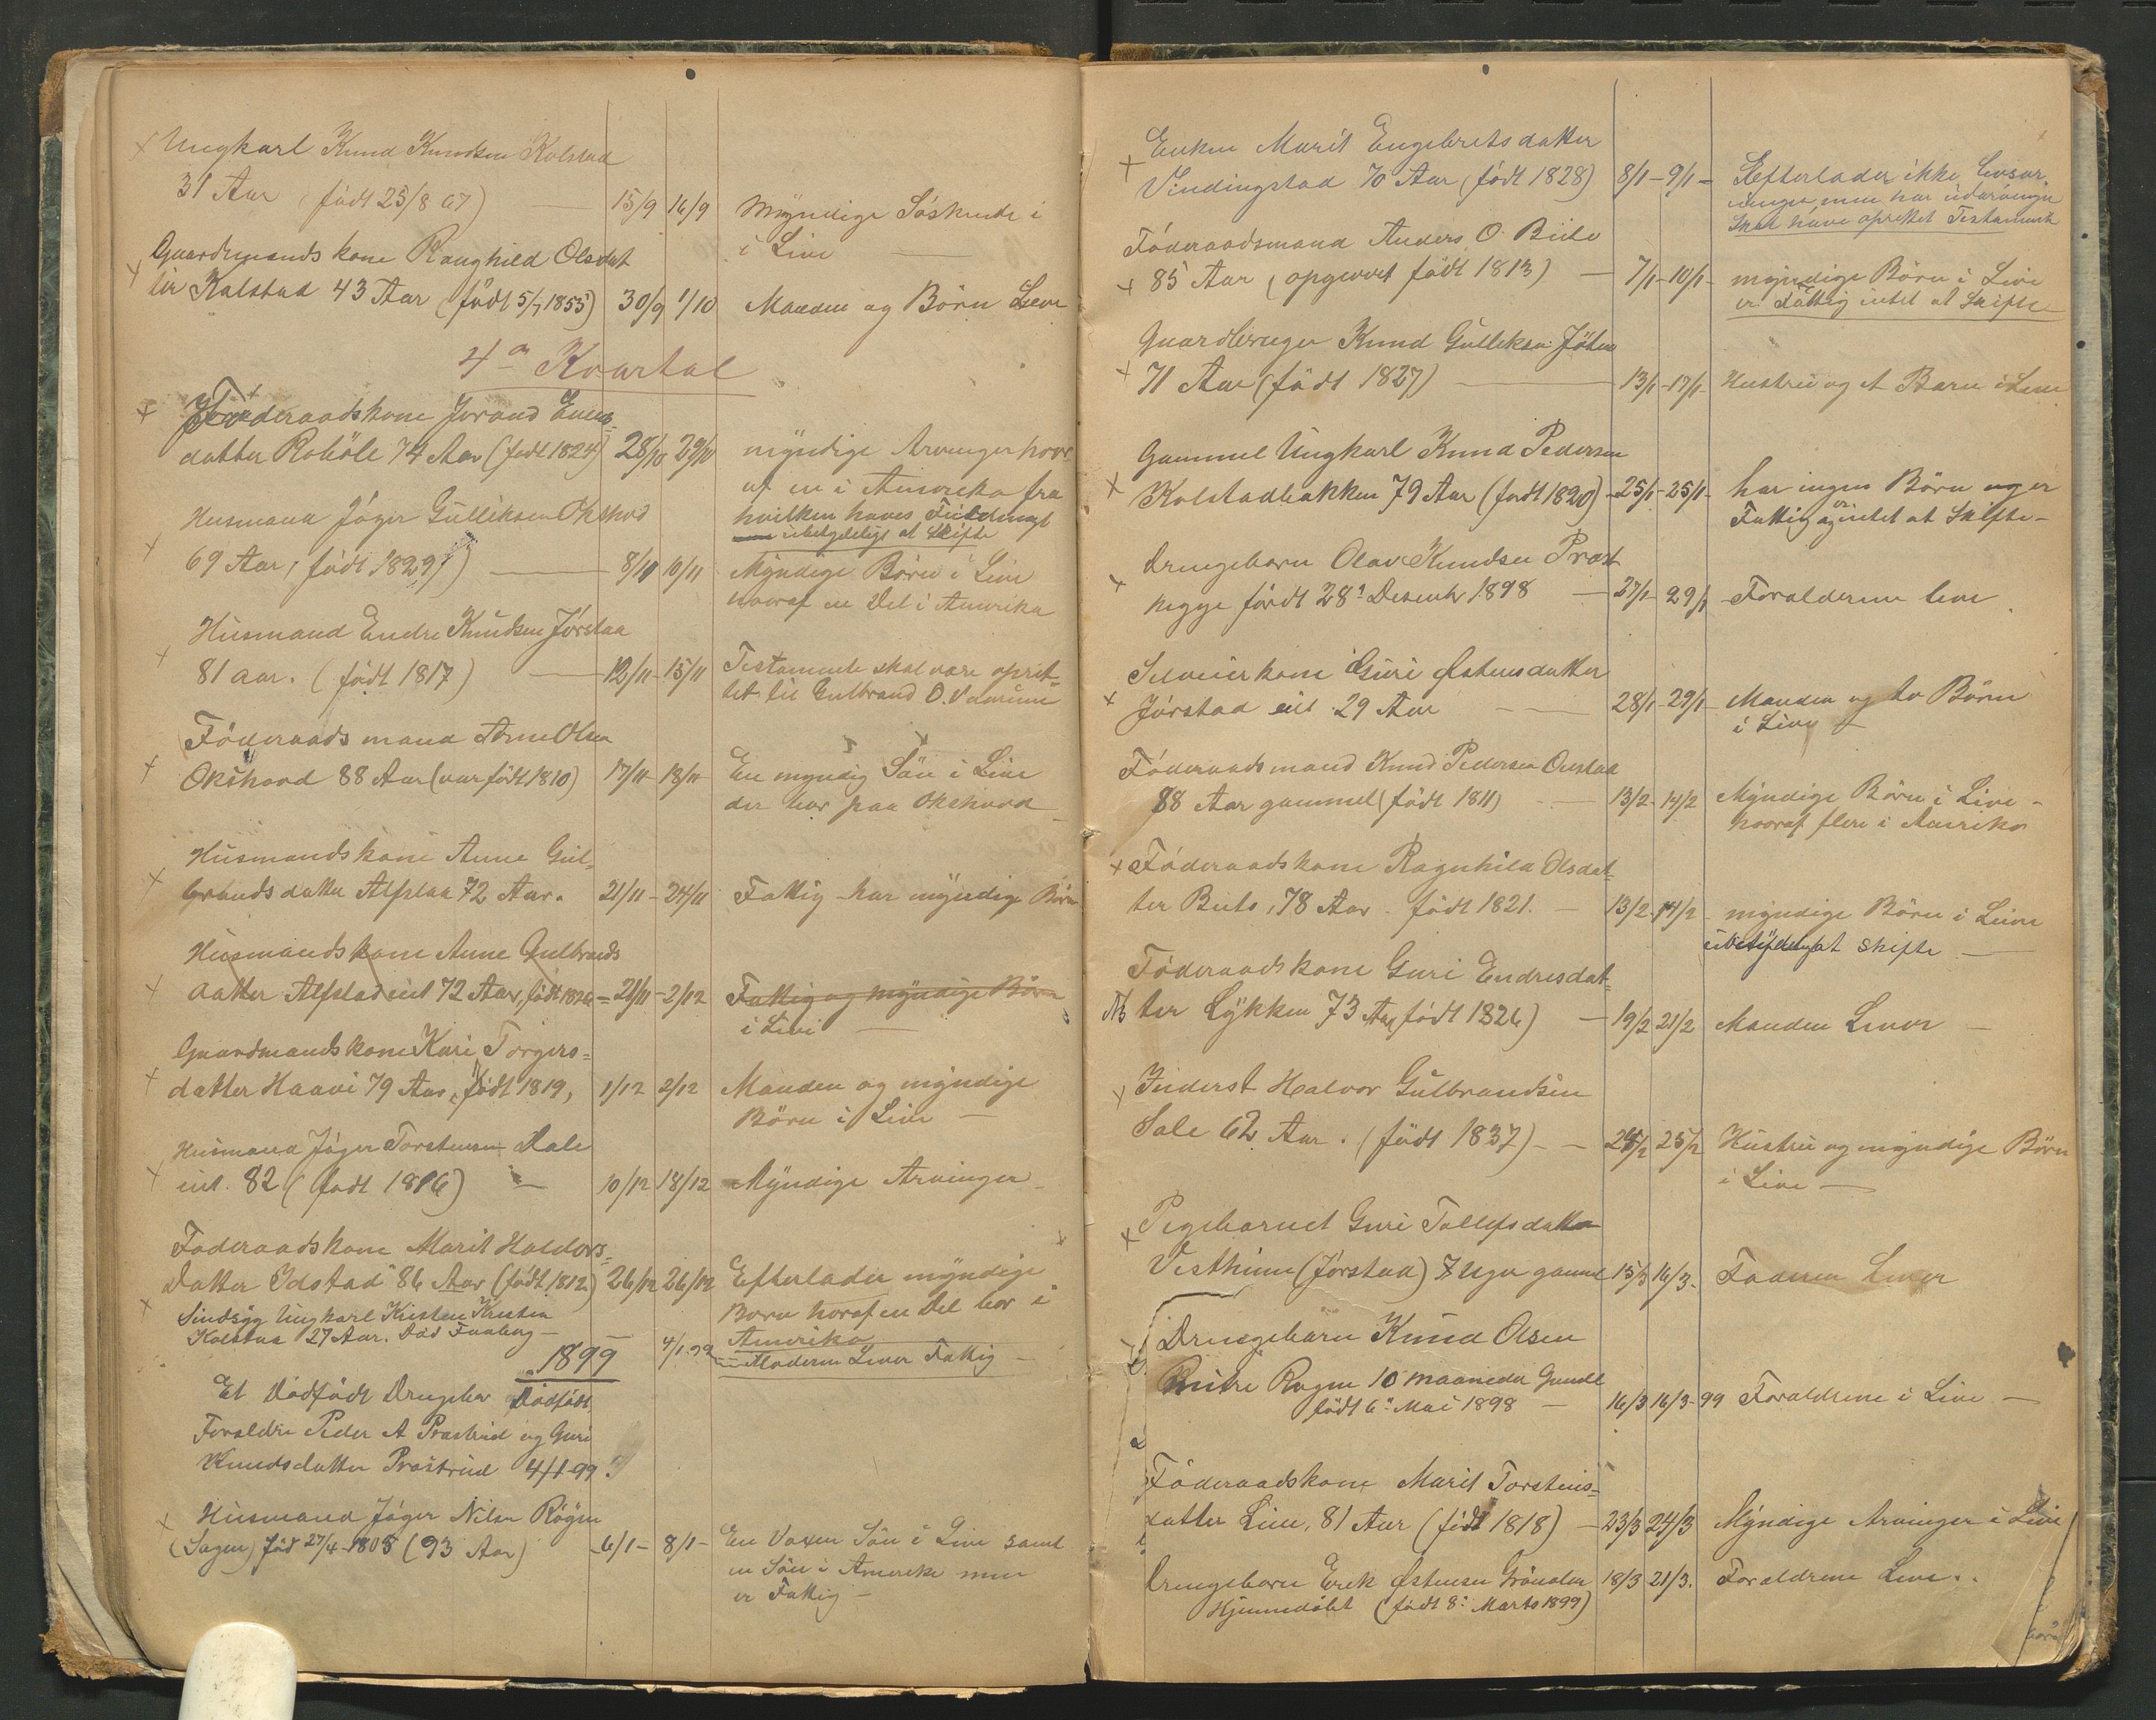 Ungkarl Knud Knudsen Kolstad
31 Aar (född 25/8 67) 15/9 16/9 Myndige Söskende i
i Live
Gaardmandskone Ranghild Olsdat
ter Kolstad 43 Aar (född 5/7 1855) 30/9 1/10 Manden og Börn Leve
4de Kvartal
Föderaadskone Jorand Evens
datter Roböle 74 Aar (född 1824) 28/10 29/10 myndige Arvinger hvor
af en i Amerika fra
hvilken haves Fuldmagt
ubetydeligt at Skifte
Husmand Jöger Gulliksen Okshod
69 Aar, född 1829) 8/11 10/11 Myndige Börn i Live
hvoraf en Del i Amerika
Husmand Endre Knudsen Jörstad
81 aar. (född 1817) 12/11 - 15/11 Testamente skal være opret-
tet til Gulbrand O.
Föderaadsmand Arne Olsen
Okshovd 88 Aar (var född 1810) 17/11 - 18/11 En myndig Sön i Live
der bor paa Okshovd
Husmandskone Anne Gul-
brandsdatter Alfstad 72 Aar. 21/11 - 24/11 Fattig har myndige Börn
Husmandskone Anne Gulbrands
datter Alfstad eist 72 Aar, född 1826 = 21/11 - 2/12 Fattig og myndige Börn
i Live
Gaardmandskone Kari Torgers=
datter Haavi 79 Aar, Född 1819, 1/12 2/12 Manden og myndige
Börn i Live
Husmand Jöger Torstensen Dale
eist. 82 (født 1816) 10/12 18/12 Myndige Arvinger
Föderaadskone Marit Haldors=
Datter Idstad 86 Aar (född 1812) 26/12 26/12 Efterlader myndige
Börn horaf en Del bor i
Amerika
Sindsyg Ungkarl Kristen Kristen
Kolstad 27 Aar. Död Faaberg 4/1.99 Moderen Lever Fattig
1899
Et Dödfödt Drengebar Dödfödt
Foraldre Peder A Prastrud og Guri
Knudsdatter Prastrud 4/1-99.
Husmand Jöger Nilsen Rögne
(Sagen) föd 27/4-1805 (93 Aar) 6/1 - 8/1 - En Voxen Sön i Live samt
en Sön i Amerika men
er Fattig
Enken Marit Engebretsdatter
Vindingstad 70 Aar (född 1828) 8/1 - 9/1 - Efterlader ikke Livsar
vinger, men har udarvinger
Skal have oprettet Testament
Föderaadsmand Anders O. Bito
85 Aar (opgivet född 1813) 7/1 - 10/1 - myndige Börn i Live
er Fattig intet at Skifte
Gaardbruger Knud Gulliksen Jöten
71 Aar (född 1827) 13/1 - 17/1 - Hustru og et Barn i Live
Gammel Ungkarl Knud Pedersen
Kolstadbakken 79 Aar (født 1820) - 25/1 - 25/1 - har ingen Börn og er
Fattig og intet at Skifte -
Drengebarn Olav Knudsen Prast
hegge född 28de Desemb 1898 27/1 - 29/1 - Foralderne leve
Selveierkone Guri Østensdatter
Jörstad eist 29 Aar 28/1 - 29/1 - Manden og to Börn
i Live
Föderaadsmand Knud Pedersen Onstad
88 Aar gammel (född 1811) 13/2 - 14/2 Myndige Börn i Live -
hvoraf flere i Amerika
Föderaadskone Ragnhild Olsdat-
ter Bito, 78 Aar. född 1821. 13/2 14/2 myndige Börn i Live
ubetydeligt at skifte
Föderaadskone Guri Endresdat=
Nb ter Lykken 73 Aar född 1826) 19/2 21/2 Manden Lever
Inderst Halvor Gulbrandsen
Sale 62 Aar. (född 1837) - 24/2 25/2 Hustru og myndige Börn
i Live
Pigebarnet Guri Tollefsdatter
Vesthum (Jörstad) 7 Uger gamel 15/3 16/3. Faderen Lever
Drengebarn Knud Olsen
Rogne 10 maaneder Gamel
född 6te Mai 1898 16/3 16/3-99 Foraldrene i Live
Föderaadskone Marit Torstens=
datter Lien, 81 Aar (född 1818) 23/3 24/3 Myndige Arvinger i Live
Drengebarn Erik Østensen Grönolen 18/3 21/3. Foraldrene Leve.
Hjemmedöbt (född 8de Marts 1899)